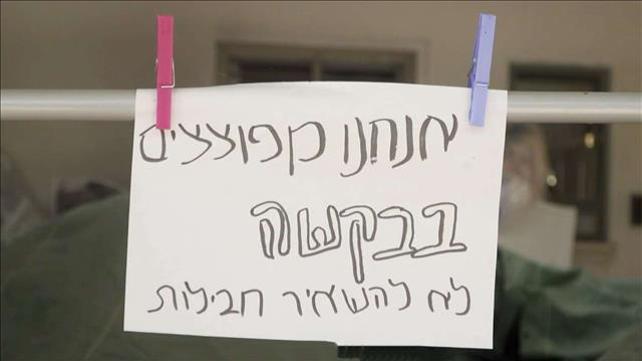 אנחנו מפוצצים
בבקשה
לא להשאיר חבילות